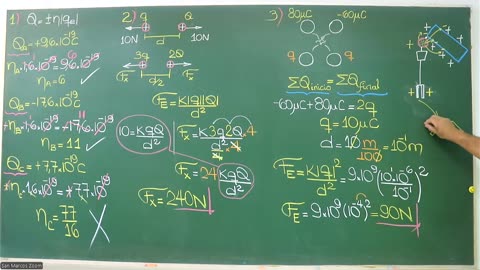 1) Q = ±n|qe|
QA = +9,6.10^-19 C
nA.1,6.10^-19 = 9,6.10^-19
6
nA = 6 ✓
QB = -17,6.10^-19 C
-nB.1,6.10^-19 = -17,6.10^-19
11
nB = 11 ✓
QC = +77.10^-19 C
nC.1,6.10^-19 = +77.10^-19
nC = 77/16 X
2) q Q
10N d 10N
3q 2Q
Fx d/2 Fx
FE = K|q||Q|/d²
10 = KqQ/d²
Fx = K3q2Q.4/d²
Fx = 24 KqQ/d²
Fx = 240N
3) 80μC -60μC
q q
ΣQinicio = ΣQfinal
-60μC + 80μC = 2q
q = 10μC
d = 10 m/100 = 10^-1 m
FE = K|q|²/d² = 9.10^9 (10.10^-6/10^-1)²
FE = 9.10^9 (10^-4)² = 90N
San Marcos Zoom